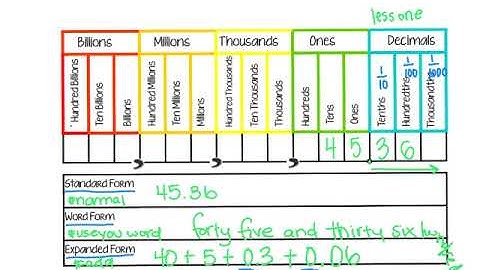 less one
Billions Millions Thousands Ones Decimals
Hundred Billions Ten Billions Billions Hundred Millions Ten Millions Millions Hundred Thousands Ten Thousands Thousands Hundreds Tens Ones Tenths Hundredths Thousandths
1/10 1/100 1/1000
, , , 4 5 . 3 6
Standard Form 45.36
normal
Word Form forty five and thirty six
use your word
Expanded Form 40 + 5 + 0.3 + 0.06